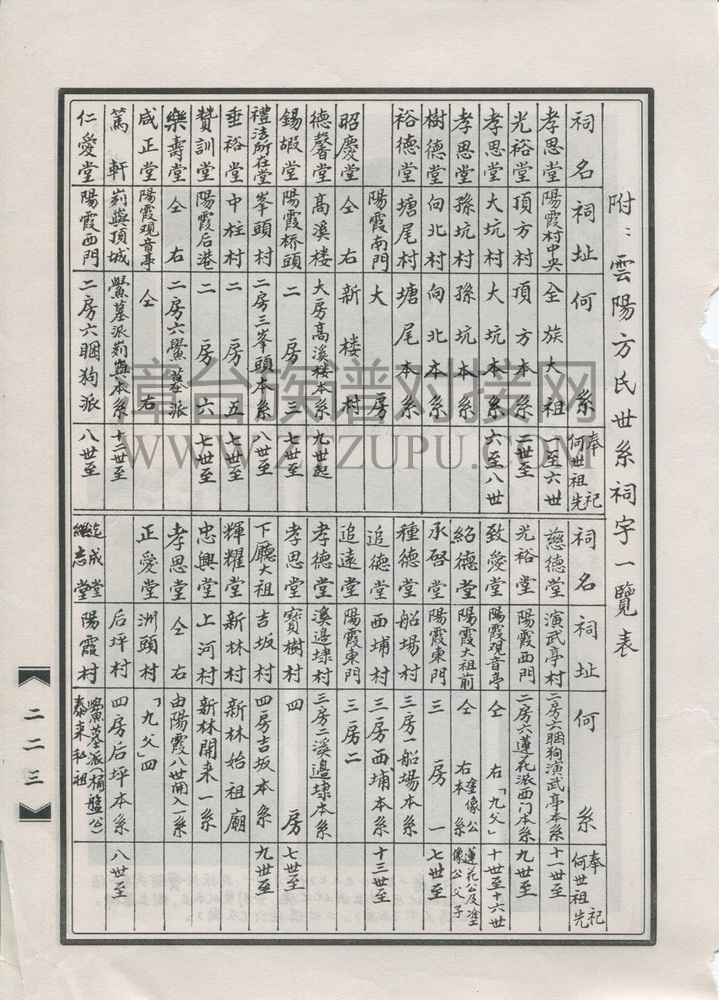 附：雲陽方氏世系祠宇一覽表
祠名 祠址 何系 奉祀何世祖先
孝思堂 陽霞村中央 全族大祖 一至六世
光裕堂 頂方村 頂方本系 二世至
孝思堂 大坑村 大坑本系 六至八世
孝思堂 孫坑村 孫坑本系
樹德堂 向北村 向北本系
裕德堂 塘尾村 塘尾本系
陽霞南門 大房
昭慶堂 仝右 新楼村
德馨堂 高溪楼 大房高溪楼本系 九世起
錫嘏堂 陽霞桥頭 二房三 七世至
禮法所在堂 峯頭村 二房三峯頭本系 八世至
垂裕堂 中柱村 二房五 七世至
贊訓堂 陽霞后港 二房六 七世至
樂壽堂 仝右 二房六鱟墓派
咸正堂 陽霞观音亭 仝右
篤軒 前與頂城 鱟墓派前與本系 十二世至
仁愛堂 陽霞西門 二房六睏狗派 八世至
祠名 祠址 何系 奉祀何世祖先
慈德堂 演武亭村 二房六睏狗演武亭本系 十一世至
光裕堂 陽霞西門 二房六蓮花派西门本系 九世至
致愛堂 陽霞观音亭 仝右「九父」 十世至十六世
紹德堂 陽霞大祖前 仝右本系塗像公 蓮花公及塗像公父子
承啓堂 陽霞東門 三房一 七世至
種德堂 船場村 三房一船場本系
追德堂 西埔村 三房西埔本系 十三世至
追遠堂 陽霞東門 三房二
孝德堂 溪邉埭村 三房二溪邉埭本系
孝思堂 寳樹村 四房 七世至
下廳大祖 吉坂村 四房吉坂本系 九世至
輝耀堂 新林村 新林始祖廟
忠興堂 上河村 新林開来一系
孝思堂 仝右 由陽霞八世開入一系
正愛堂 洲頭村 「九父」四
后坪村 四房后坪本系 八世至
繼志堂 陽霞村 鱟墓派(桶盤公)泰来私祖
二二三
漳台族谱对接网
WWW.ZTZUPU.COM